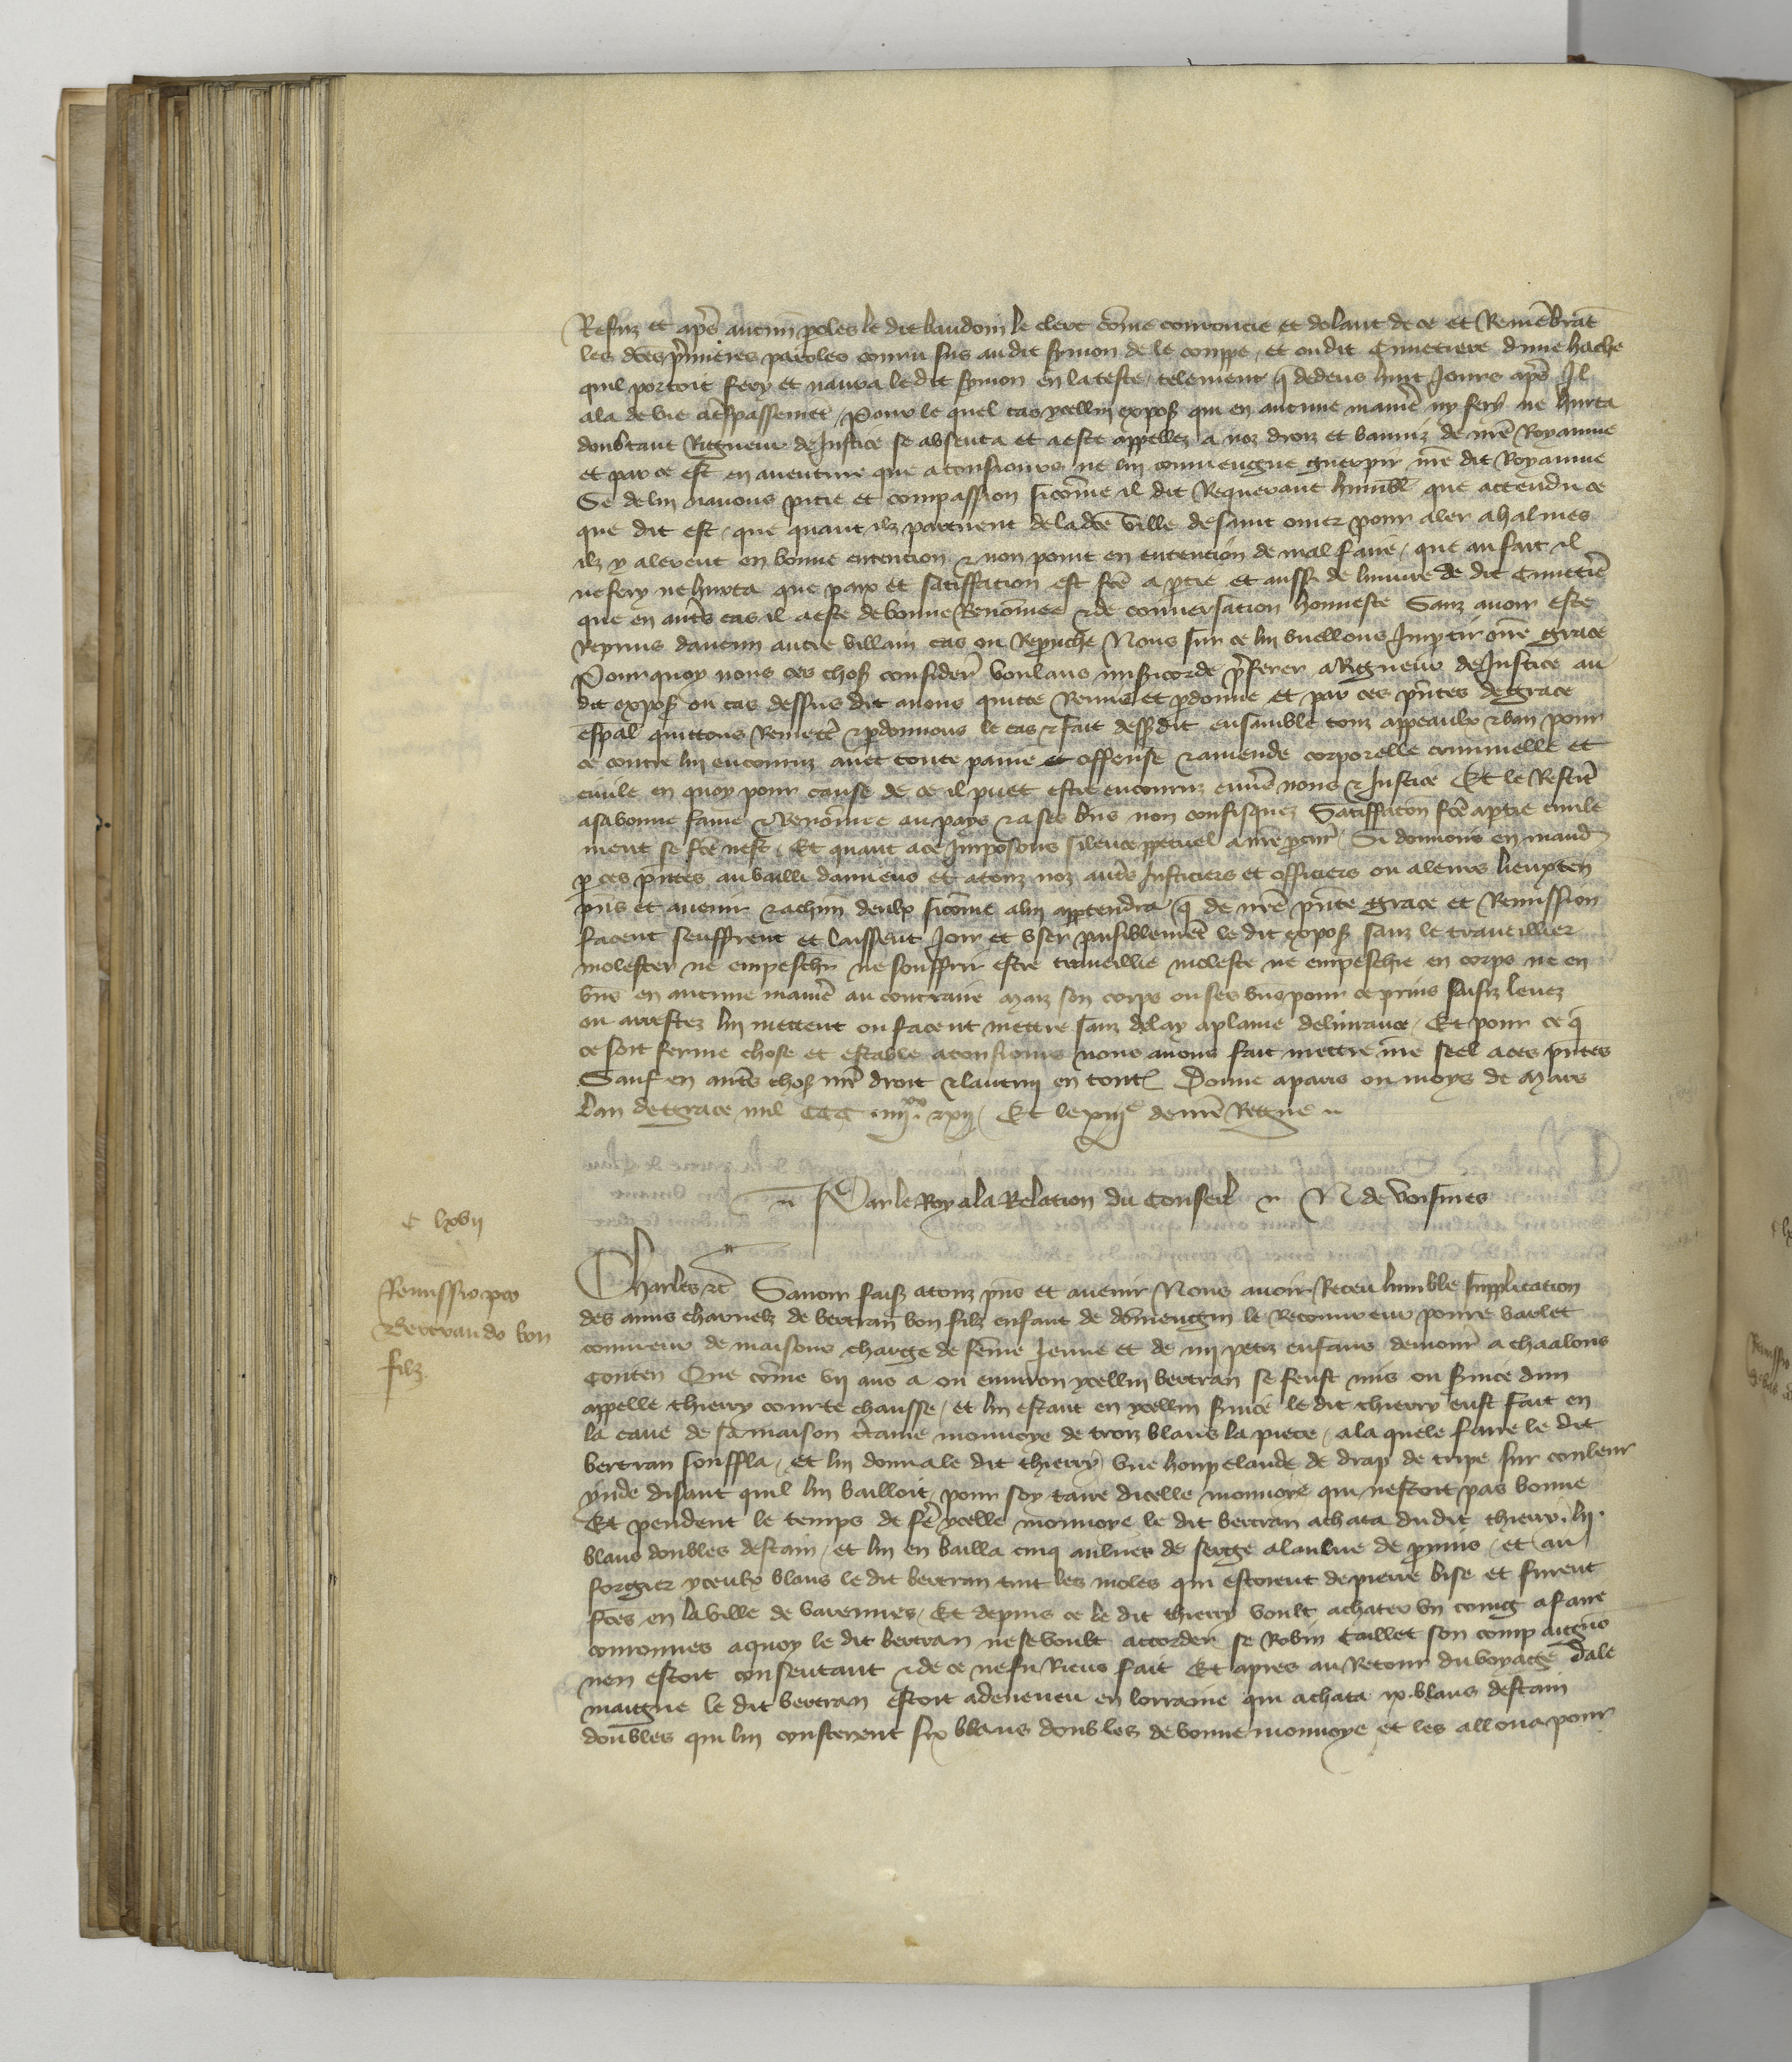 Refuz et apres aucunes paroles le dit baudoin le clerc come courroucie et dolant de ce et Remembrant
les dces premieres paroles couru sus au dit symon de le couppe, et ou dit Cimetiere dune hache
quil portoit fery et navra le dit symon en la teste, telement q dedens huit Jours apres Il
ala de vie a trespassement, Pour le quel cas ycellui expos qui en aucune manere ny fery ne hurta
doubtant Rigueur de Justice se absenta et a este appellez a noz droiz et banniz de nre Royaume
et par ce est en aventure que a tousiours ne lui conviengne guerpir nre dit Royaume
Se de lui navons pitie et compassion sicome il dit Requerant humbl que attendu ce
que dit est, que quant ilz partirent de la dce ville de saint omer pour aler a halines
ilz y alerent en bonne entencion & non point en entencion de mal faire, que au fait il
ne fery ne hurta que paix et satiffacion est fce a ptie et aussi de liniure de dit Cimetiere
que en autres cas il a este de bonne Renomee & de conversation honneste Sanz avoir este
Repruis daucun autre villain cas ou Reprouche Nous sur ce lui vueillons Impartir nre grace
Pourquoy nous ces choses considere voulans misericorde preferer a Rigueur de Justice au
dit expos ou cas dessus dit avons quitte Remis et pdonne et par ces pntes de grace
espal quittons Remettons & pdonnons le cas & fait dessusdit ensamble touz appeaulx & ban pour
ce contre lui encouruz avec toute paine et offense & amende corporelle criminelle et
civile en quoy pour cause de ce il puet estre encouruz envers nous & Justice Et le Restit
a sa bonne fame & Renomee au pays & a ses bns non confisquez Satiffacon fce a ptie civile
ment se fce nest, Et quant a ce Imposons silence ppetuel a nre pcur Si donnons en mand
p ces pntes au bailli damiens et a touz noz autres Justiciers et officiers ou a leurs lieuxten
pns et avenir & a chun deulx sicome a lui apptendra q de nre pnte grace et Remission
facent seuffrent et laissent Joir et user paisiblement le dit expos sanz le traveillier
molester ne empeschr ne souffrir estre traveillie moleste ne empeschie en corps ne en
bns en aucune manere au contraire Maiz son corps ou ses bns pour ce prins saisiz levez
ou arrestez lui mettent ou facent mettre sanz delay a plaine delivrance, Et pour ce q
ce soit ferme chose et estable a tousiours nous avons fait mettre nre seel a ces pntes
Sauf en autres choses nre droit & lautruy en toutes Donne a paris ou moys de Mars
Lan de grace mil CCC iiii xx & xii, Et le xiii e de nre Regne
Par le Roy a la Relation du Conseil N de voisines
C lxvii
Remissio pro
Bertrando bon
filz
Charles &c Savoir faisons a touz pns et avenir Nous avoir Receu humble supplication
des amis charnelz de bertran bon filz enfant de domengin le Recouvreur povre varlet
couvreur de maisons charge de feme Jeune et de iii petiz enfans demour a chaalons
Conten Que come vii ans a ou environ ycellui bertran se feust mis ou service dun
appelle thierry courte chausse, et lui estant en ycellui service le dit thierry eust fait en
la cave de sa maison certaine monnoye de troiz blans la piece, a la quele faire le dit
bertran souffla, et lui donna le dit thierry une houppelande de drap de tripe sur couleur
ynde disant quil lui bailloit, pour soy taire dicelle monnoye qui nestoit pas bonne
Et pendent le temps de fere ycelle monnoye le dit bertran achata dudit thierry. lii.
blans doubles destain, et lui en bailla cinq aulnes de serge a laulne de prouuis, et au
forgier yceulx blans le dit bertran tint les moles qui estoient de pierre bise et furent
fces en la ville de varennes, Et depuis ce le dit thierry voult achater un coing a faire
couronnes a quoy le dit bertran ne se voult accorder se Robin taillet son comp
nen estoit consentant & de ce ne fu Riens fait Et apres au Retour du voyage dale
maigne le dit bertran estoit a deneuen en lorraine qui achata ix. blans destain
doubles qui lui cousterent six blans doubles de bonne monnoye et les alloua pour